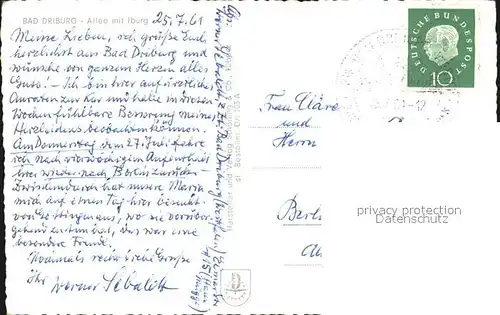 BAD DRIBURG - Allee mit Iburg 25.7.61
Meine Lieben, ich grüße Euch
herzlichst aus Bad Driburg und
wünsche von ganzem Herzen alles
Gute! – Ich bin hier auf ärztliches
Anraten zur Kur und habe in diesen
Wochen fühlbare Besserung meines
Herzleidens beobachten können.
Am Donnerstag dem 27. Juli fahre
ich nach vierwöchigem Aufenthalt
hier wieder nach Berlin zurück.
Zwischendurch hat unsere Maria
mich auf einen Tag hier besucht
von Göttingen aus, wo sie vorüber-
gehend zu tun hat, das war eine
besondere Freude.
Nochmals recht liebe Grüße
Ihr Werner Sebaldt
Werner Sebaldt z. Zt. Bad Driburg (Westfalen)
DEUTSCHE BUNDESPOST
10
Frau Cläre
und
Herrn
Berli
privacy protection
Datenschutz